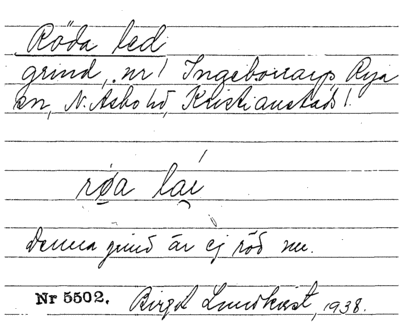 Röda led
grind, nr 1 Ingeborrarp, Rya
sn, N. Åsbo hd, Kristianstads l.
røa lai
Denna grind är ej röd nu.
Nr 5502. Birgit Lundkvist, 1938.